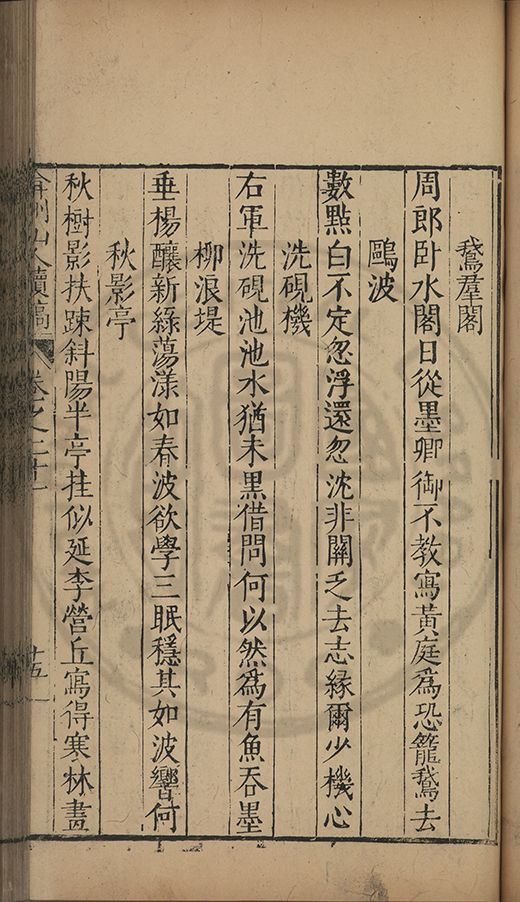 鵞羣閣
周郎卧水閣日從墨卿御不教寫黃庭爲恐籠鵞去
鷗波
數點白不定忽浮還忽沈非關乏去志緣爾少機心
洗硯機
右軍洗硯池池水猶未黒借問何以然爲有魚吞墨
柳浪堤
垂楊釀新綠蕩漾如春波欲學三眠穩其如波響何
秋影亭
秋樹影扶踈斜陽半亭挂似延李營丘寫得寒林畫
山人續稿 卷之二十一 十五